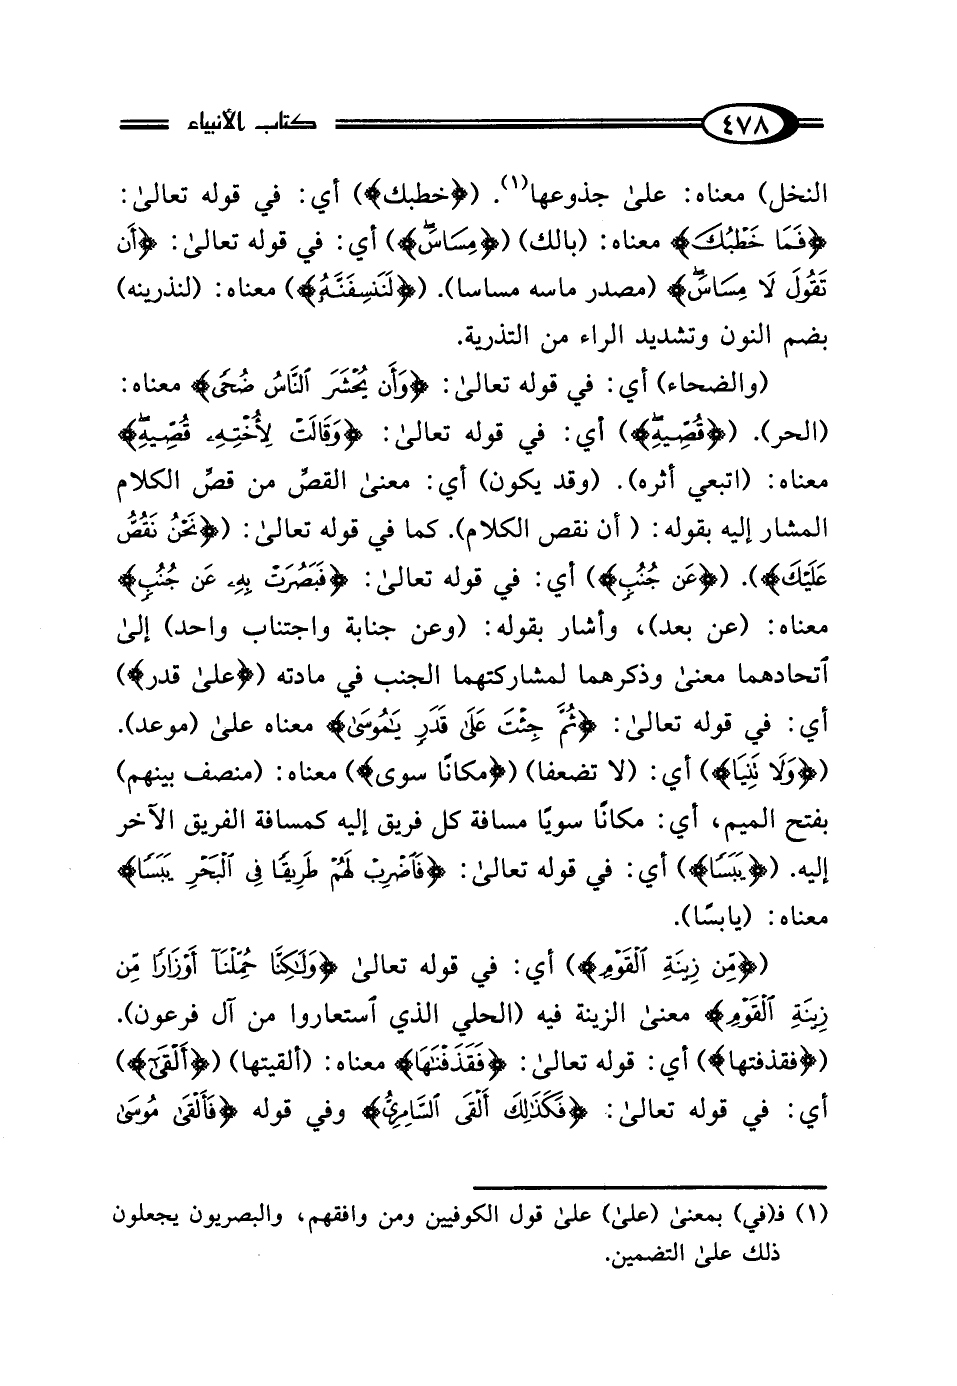 ٤٧٨ كتاب الأنبياء
النخل) معناه: علىٰ جذوعها(١). (﴿خطبك﴾) أي: في قوله تعالىٰ:
﴿فَمَا خَطْبُكَ﴾ معناه: (بالك) (﴿مِسَاسَ﴾) أي: في قوله تعالىٰ: ﴿أَن
تَقُولَ لَا مِسَاسَ﴾ (مصدر ماسه مساسا). (﴿لَنَنسِفَنَّهُ﴾) معناه: (لنذرينه)
بضم النون وتشديد الراء من التذرية.
(والضحاء) أي: في قوله تعالىٰ: ﴿وَأَن يُحْشَرَ ٱلنَّاسُ ضُحًى﴾ معناه:
(الحر). (﴿قُصِّيهِ﴾) أي: في قوله تعالىٰ: ﴿وَقَالَتْ لِأُخْتِهِۦ قُصِّيهِ﴾
معناه: (اتبعي أثره). (وقد يكون) أي: معنىٰ القصِّ من قصِّ الكلام
المشار إليه بقوله: ( أن نقص الكلام). كما في قوله تعالىٰ: (﴿نَحْنُ نَقُصُّ
عَلَيْكَ﴾). (﴿عَن جُنُبٍ﴾) أي: في قوله تعالىٰ: ﴿فَبَصُرَتْ بِهِۦ عَن جُنُبٍ﴾
معناه: (عن بعد)، وأشار بقوله: (وعن جنابة واجتناب واحد) إلىٰ
ٱتحادهما معنىٰ وذكرهما لمشاركتهما الجنب في مادته (﴿علىٰ قدر﴾)
أي: في قوله تعالىٰ: ﴿ثُمَّ جِئْتَ عَلَىٰ قَدَرٍ يَٰمُوسَىٰ﴾ معناه علىٰ (موعد).
(﴿وَلَا تَنِيَا﴾) أي: (لا تضعفا) (﴿مكانًا سوى﴾) معناه: (منصف بينهم)
بفتح الميم، أي: مكانًا سويًا مسافة كل فريق إليه كمسافة الفريق الآخر
إليه. (﴿يَبَسًا﴾) أي: في قوله تعالىٰ: ﴿فَٱضْرِبْ لَهُمْ طَرِيقًا فِي ٱلْبَحْرِ يَبَسًا﴾
معناه: (يابسًا).
(﴿مِّن زِينَةِ ٱلْقَوْمِ﴾) أي: في قوله تعالىٰ ﴿وَلَٰكِنَّا حُمِّلْنَآ أَوْزَارًا مِّن
زِينَةِ ٱلْقَوْمِ﴾ معنىٰ الزينة فيه (الحلي الذي ٱستعاروا من آل فرعون).
(﴿فقذفتها﴾) أي: قوله تعالىٰ: ﴿فَقَذَفْنَٰهَا﴾ معناه: (ألقيتها) (﴿أَلْقَىٰٓ﴾)
أي: في قوله تعالىٰ: ﴿فَكَذَٰلِكَ أَلْقَى ٱلسَّامِرِيُّ﴾ وفي قوله ﴿فَأَلْقَىٰ مُوسَىٰ
(١) فـ(في) بمعنىٰ (علىٰ) علىٰ قول الكوفيين ومن وافقهم، والبصريون يجعلون
ذلك علىٰ التضمين.